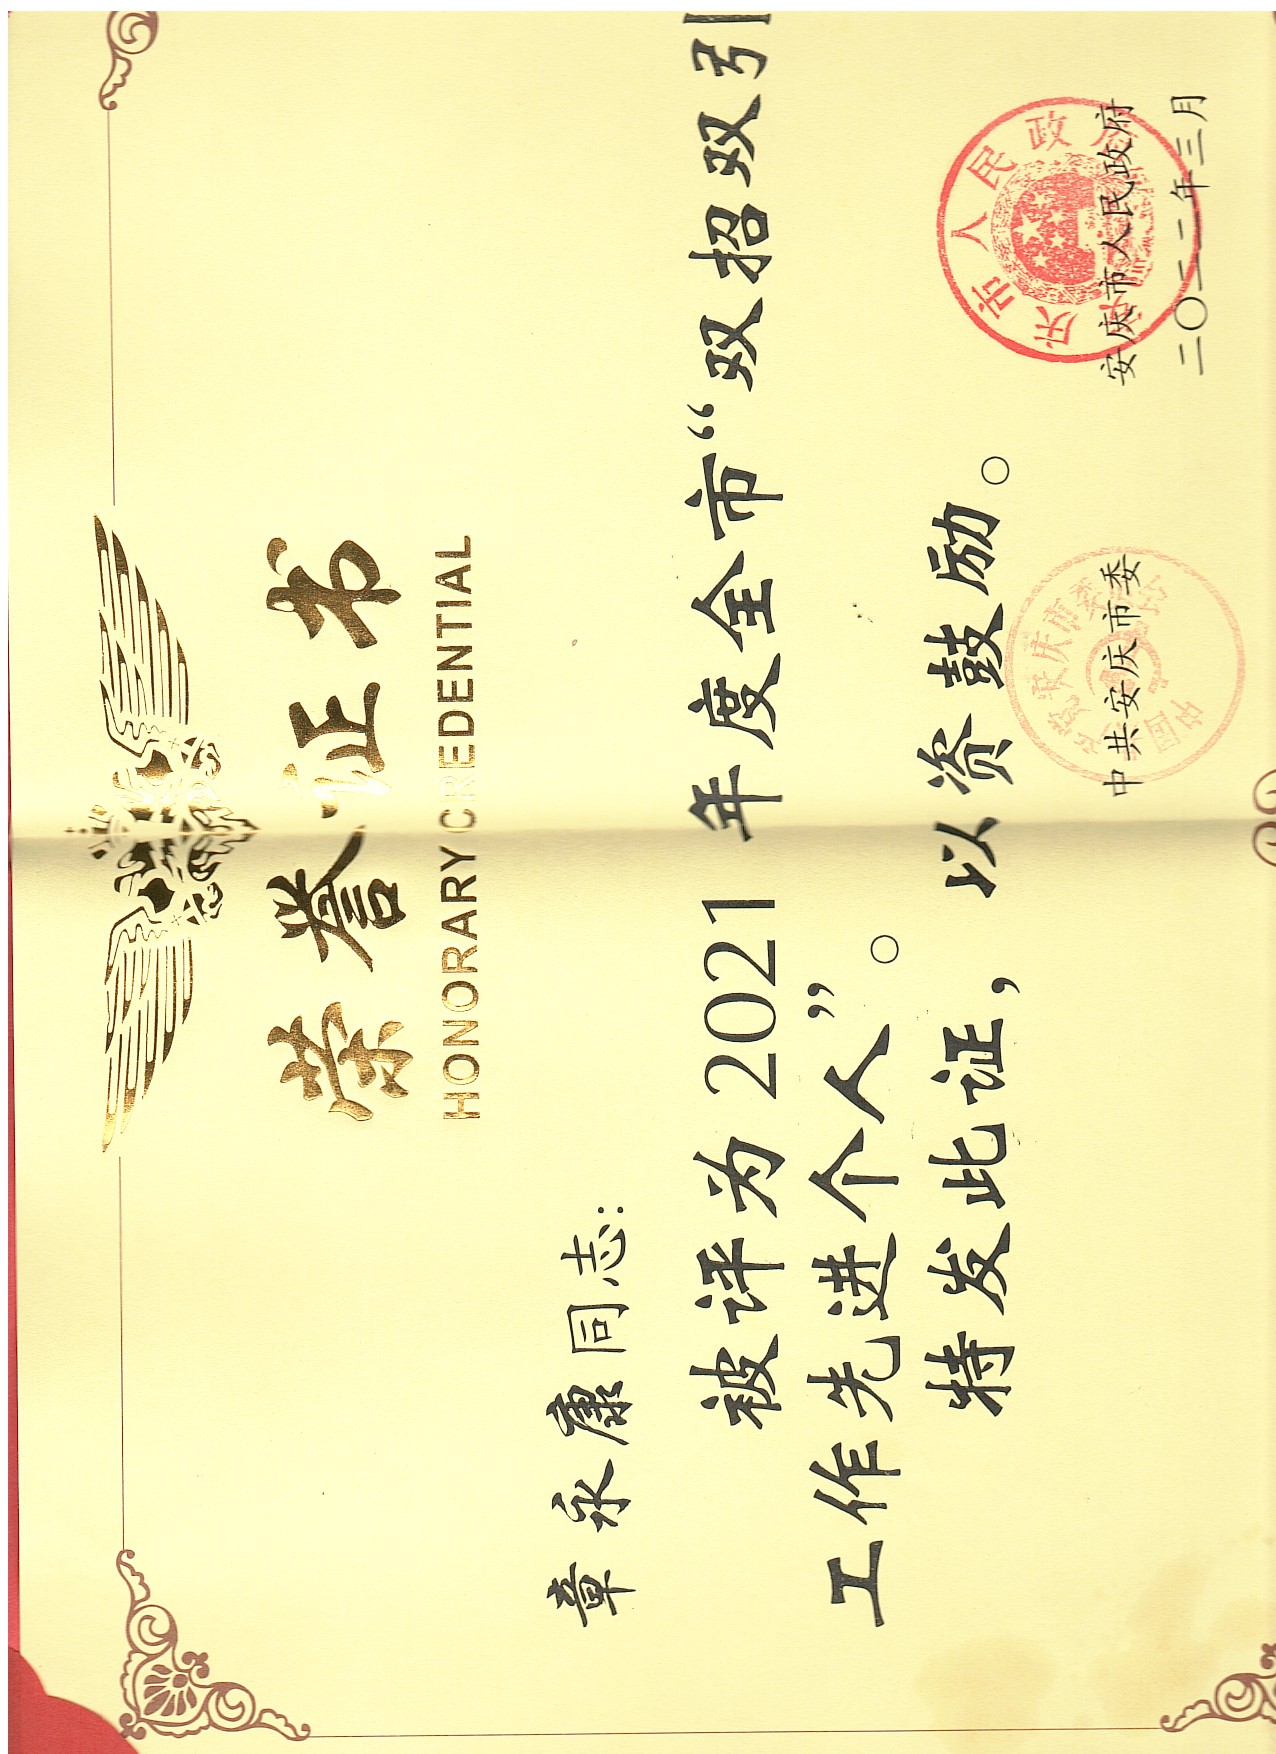 荣誉证书
HONORARY CREDENTIAL
章永康同志:
被评为 2021 年度全市“双招双引
工作先进个人”。
特发此证，以资鼓励。
中国共产党安庆市委员会
安庆市人民政府
中共安庆市委 安庆市人民政府
二〇二二年三月